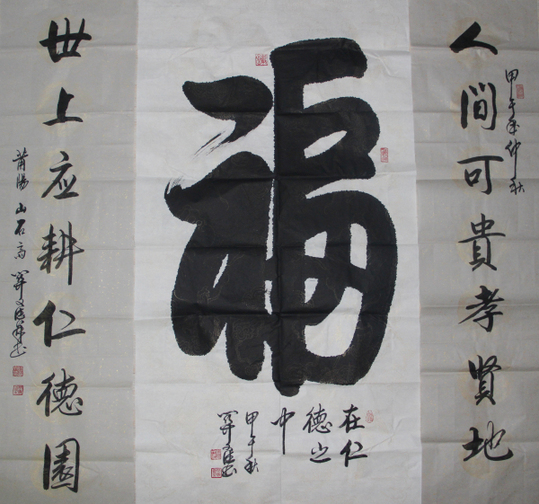 人間可貴孝賢地
甲午年仲秋
福
在仁
德之
中
甲午秋
世上应耕仁德園
莆陽 山石高